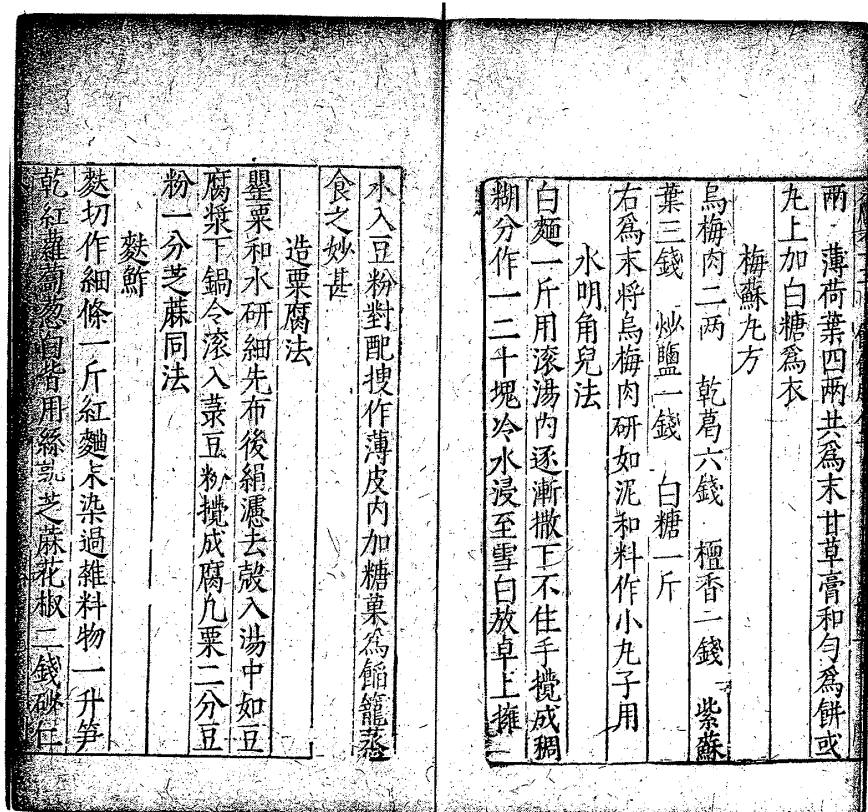 兩　薄荷葉四兩共爲末甘草膏和勻爲餅或
丸上加白糖爲衣
梅蘇丸方
烏梅肉二两　乾葛六錢　檀香二錢　紫蘇
葉三錢　炒鹽一錢　白糖一斤
右爲末將烏梅肉研如泥和料作小丸子用
水明角兒法
白麵一斤用滾湯內逐漸撒下不住手攪成稠
糊分作一二十塊冷水浸至雪白放卓上擁
水入豆粉對配搜作薄皮內加糖菓爲餡籠蒸
食之妙甚
造粟腐法
罌粟和水研細先布後絹濾去殼入湯中如豆
腐漿下鍋令滾入菉豆粉攪成腐凢粟二分豆
粉一分芝蔴同法
麩鮓
麩切作細條一斤紅麯末染過雜料物一升笋
乾紅蘿蔔葱白皆用絲熟芝蔴花椒二錢砂仁